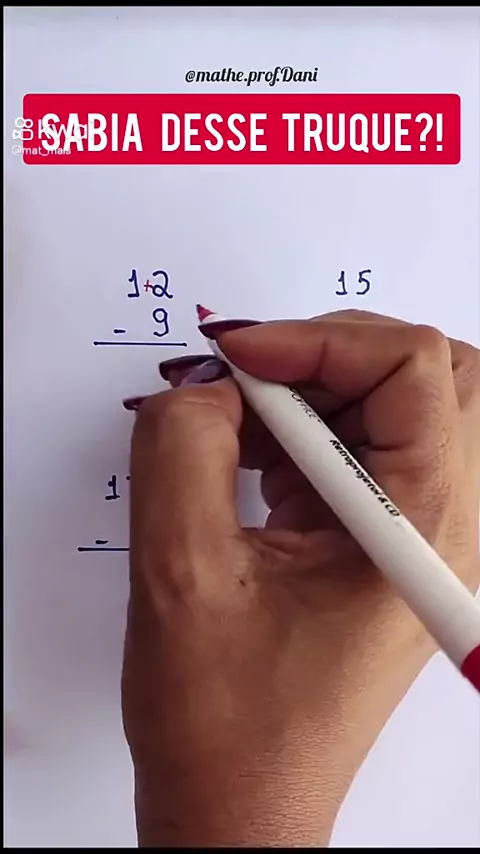 @mathe.prof.Dani
SABIA DESSE TRUQUE?!
@mat_mais
1+2 15
- 9
1
-
Retroprojetor & CD